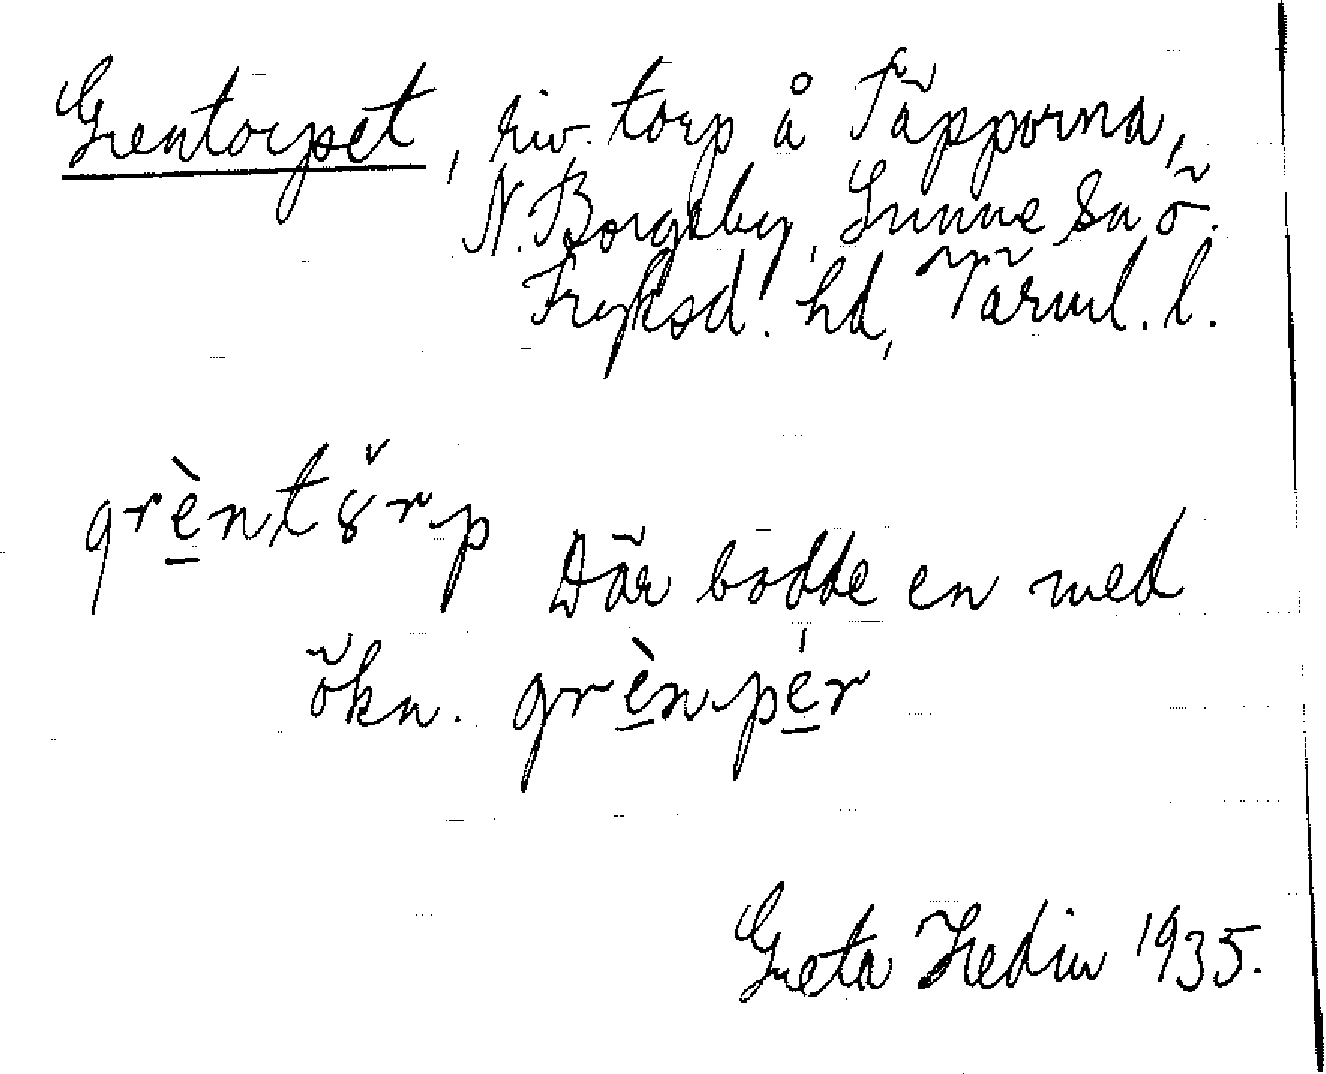 Grentorpet, riv. torp å Täpporna,
N. Borgeby, Sunne sn ö.
Fryksd. hd, Värml. l.
grèntŏ́rp
Där bodde en med
ökn. grènpér
Greta Hedin 1935.